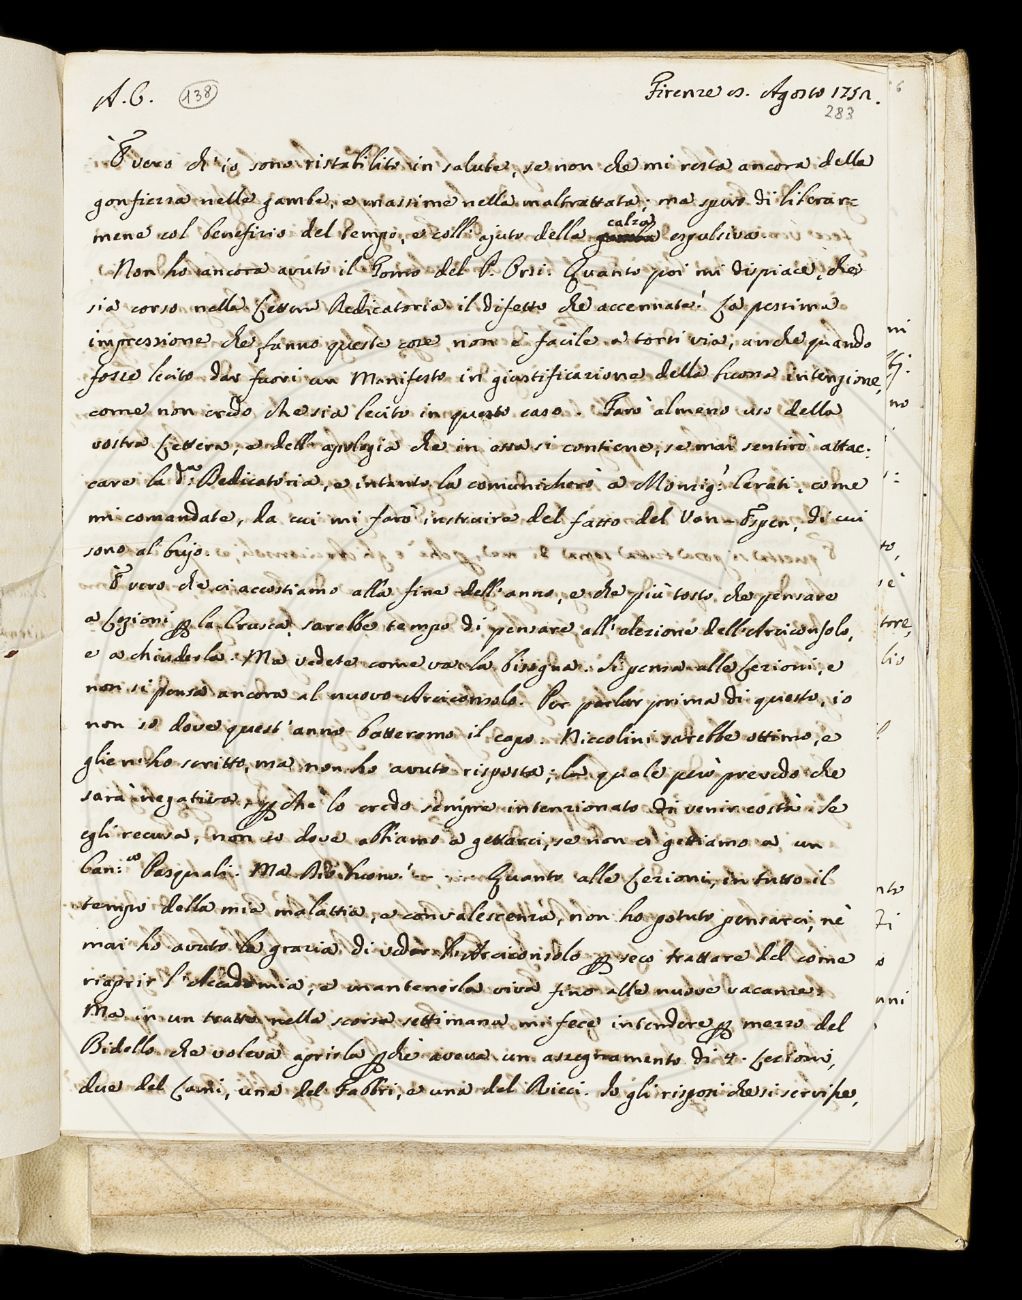 A. C. 138 Firenze 8. Agosto 1752.
283
È vero ch'io sono ristabilito in salute, se non che mi resta ancora della
gonfiezza nelle gambe, e massime nella maltrattata; ma spero di liberar=
mene col benefizio del tempo, e coll'ajuto della gamba calza espulsiva.
Non ho ancora avuto il Tomo del P. Orsi. Quanto poi mi dispiace, che
sia corso nella Lettera Dedicatoria il difetto che accennate! La pessima
impressione che fanno queste cose, non è facile a torsi via, anche quando
fosse lecito dar fuori un Manifesto in giustificazione della buona intenzione,
come non credo che sia lecito in questo caso. Farò almeno uso della
vostra Lettera, e dell'apologia che in essa si contiene, se mai sentirò attac:
care la d.a Dedicatoria, e intanto la comunicherò a Monsig.r Cerati, come
mi comandate, da cui mi farò instruire del fatto del Van-Espen, di cui
sono al bujo.
È vero che ci accostiamo alla fine dell'anno, e che più tosto che pensare
a Lezioni p la Crusca, sarebbe tempo di pensare all'elezione dell'Arciconsolo,
e a chiuderla. Ma vedete come va la bisogna. Si pensa alle Lezioni, e
non si pensa ancora al nuovo Arciconsolo. Per parlar prima di questo, io
non so dove quest'anno batteremo il capo. Niccolini sarebbe ottimo, e
glien'ho scritto, ma non ho avuto risposta; la quale però prevedo che
sarà negativa, pchè lo credo sempre intenzionato di venir costà. Se
egli recusa, non so dove abbiamo a gettarci, se non ci gettiamo a un
Can:co Pasquali. Ma Quanto alle Lezioni, in tutto il
tempo della mia malattia, e convalescenza, non ho potuto pensarci, nè
mai ho avuto la grazia di veder l'Arciconsolo p seco trattare del come
riaprir l'Accademia, e mantenerla viva fino alle nuove vacanze.
Ma in un tratto nella scorsa settimana mi fece intendere p mezzo del
Bidello che voleva aprirla pchè aveva un assegnamento di 4. Lezioni,
due del Lami, una del Fabbri, e una del Ricci. Io gli risposi che si servisse,